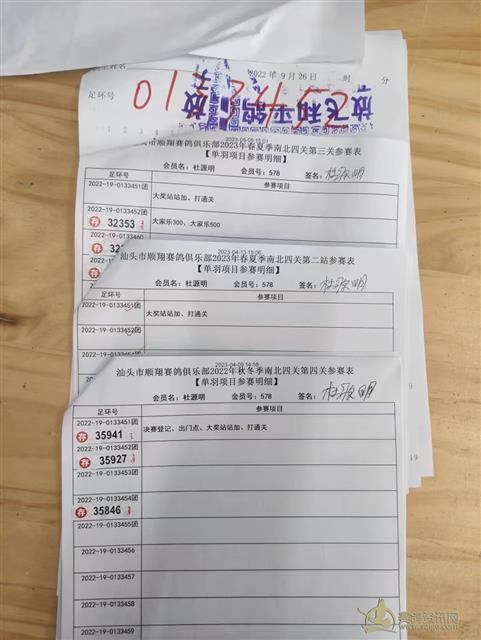 2022年9月26日 时 分
足环号
放飞和平鸽
放
2023-05-05 15:01
俱乐部2023年春夏季南北四关第三关参赛表
【单羽项目参赛明细】
会员名：杜源明 会员号：578 签名：杜源明
足环号 参赛项目
2022-19-0133451团
大奖站站加、打通关
2022-19-0133452团
存 32353
大家乐300、大家乐500
2022-19-0133460
存
2023-04-13 15:06
汕头市顺翔赛鸽俱乐部2023年春夏季南北四关第二站参赛表
【单羽项目参赛明细】
会员名：杜源明 会员号：578 签名：杜源明
足环号 参赛项目
2022-19-0133451团
大奖站站加、打通关
2022-19-0133452
2023-04-09 14:58
汕头市顺翔赛鸽俱乐部2022年秋冬季南北四关第四关参赛表
【单羽项目参赛明细】
会员名：杜源明 会员号：578 签名：杜源明
足环号 参赛项目
2022-19-0133451团
存 35941
决赛登记、出门点、大奖站站加、打通关
2022-19-0133452团
存 35927
2022-19-0133453团
2022-19-0133454团
存 35846
2022-19-0133455团
2022-19-0133456
2022-19-0133457
2022-19-0133458
2022-19-0133459
赛鸽资讯网